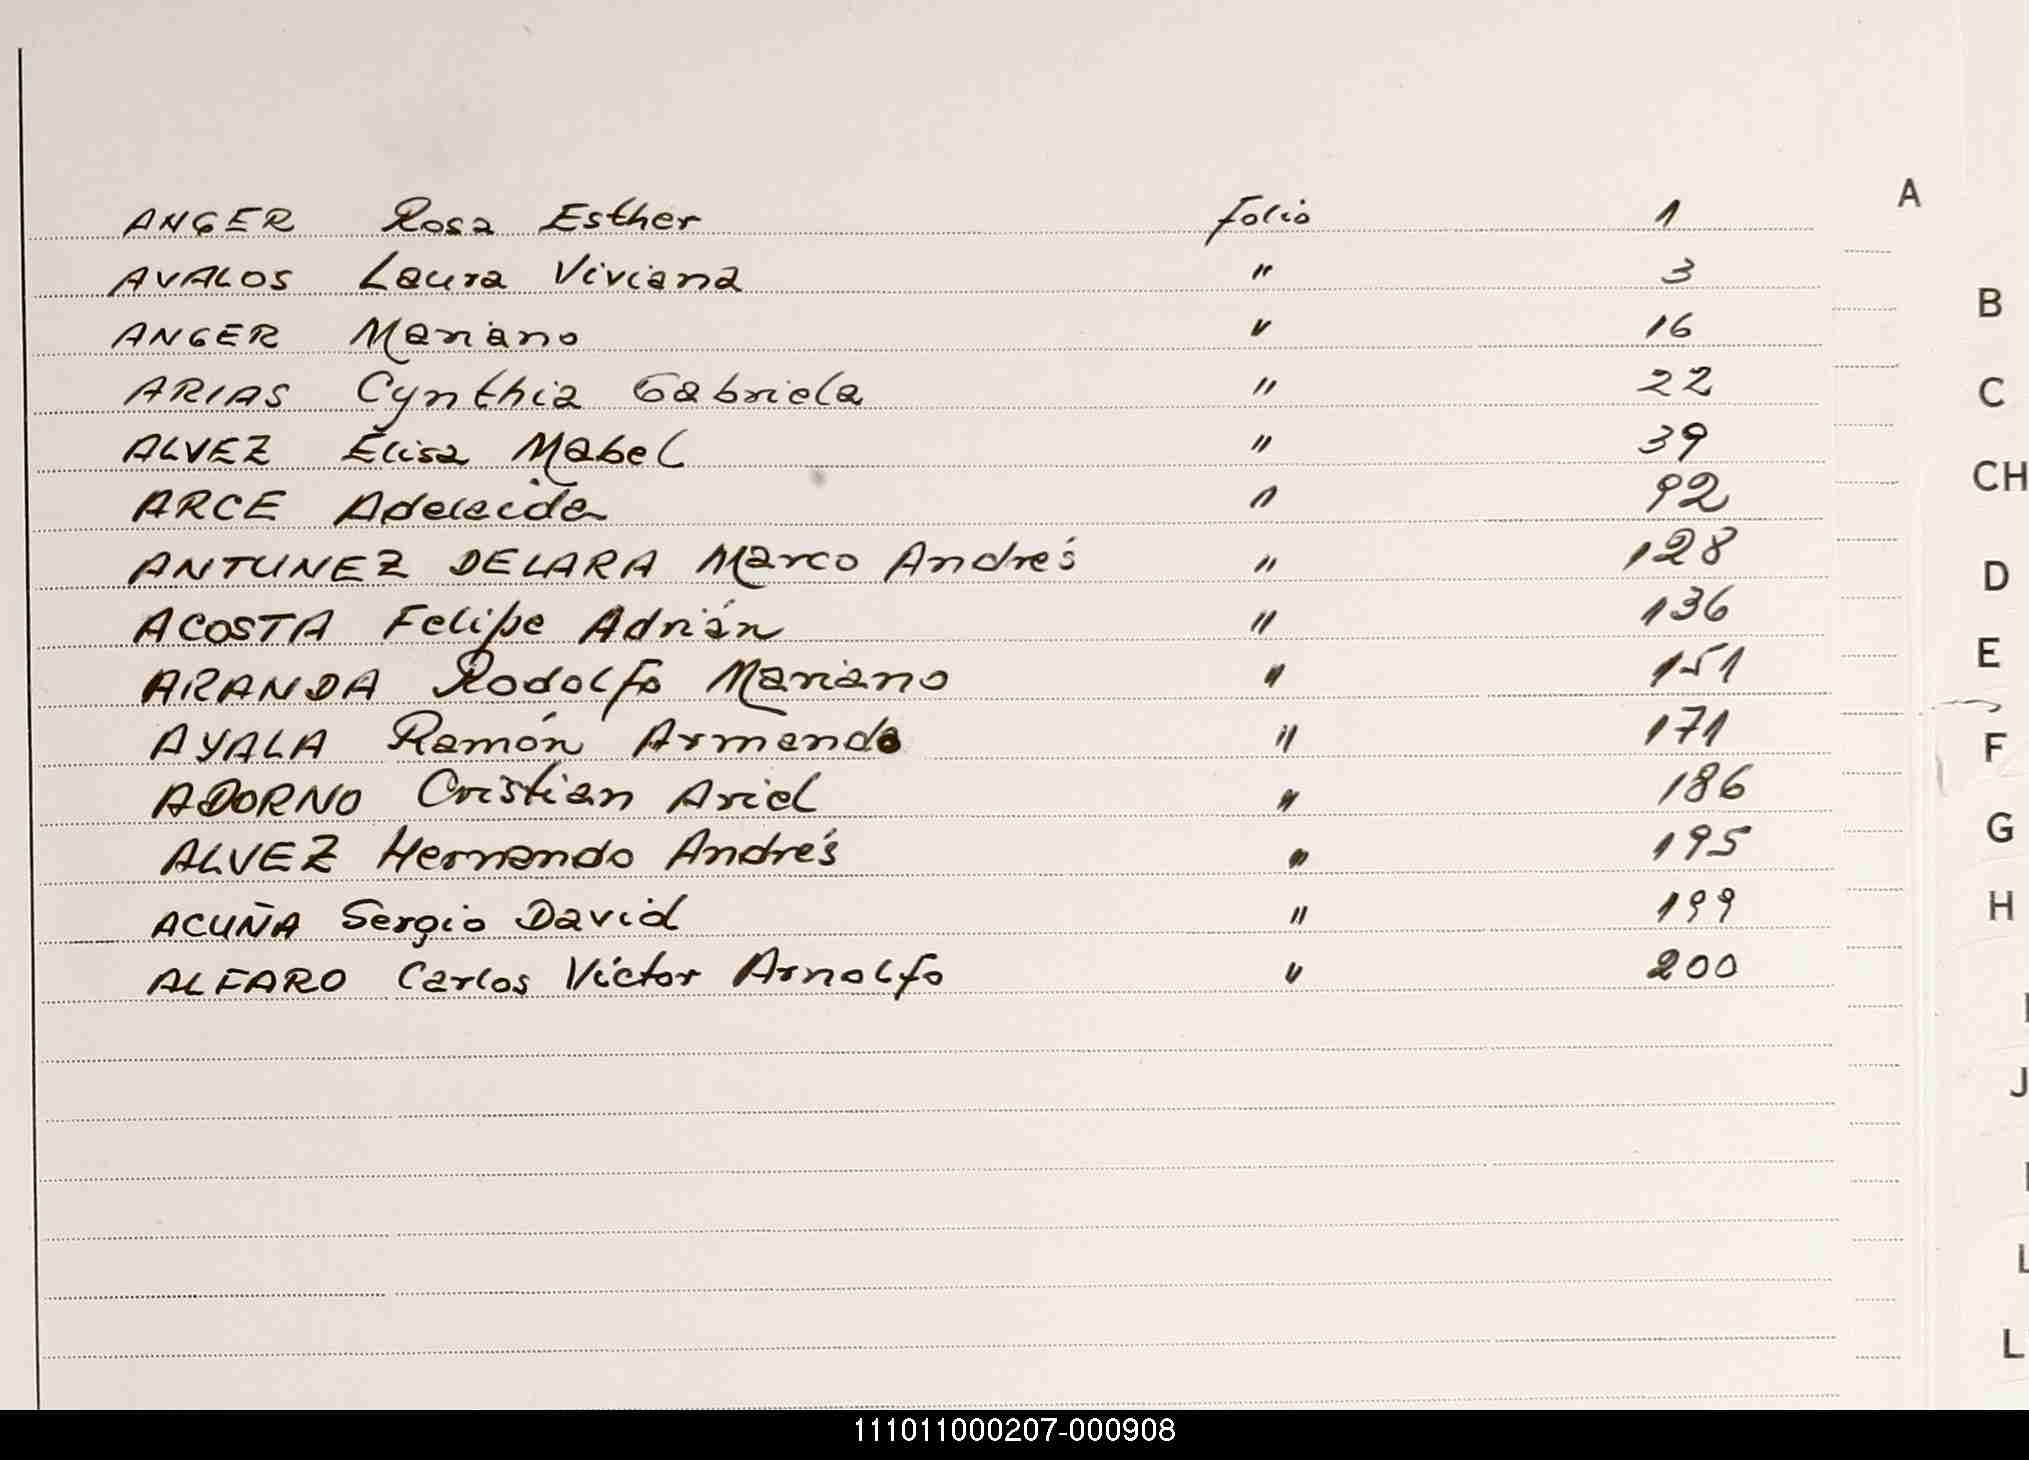 ANGER Rosa Esther folio 1
AVALOS Laura Viviana " 3
ANGER Mariano " 16
ARIAS Cynthia Gabriela " 22
ALVEZ Elisa Mabel " 39
ARCE Adelaida " 92
ANTUNEZ DELARA Marco Andrés " 128
ACOSTA Felipe Adrián " 136
ARANDA Rodolfo Mariano " 151
AYALA Ramón Armando " 171
ADORNO Cristian Ariel " 186
ALVEZ Hernando Andrés " 195
ACUÑA Sergio David " 199
ALFARO Carlos Victor Arnolfo " 200
A
B
C
CH
D
E
F
G
H
J
L
L
111011000207-000908